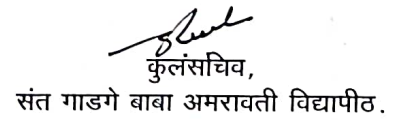 कुलंसचिव,
संत गाडगे बाबा अमरावती विद्यापीठ.